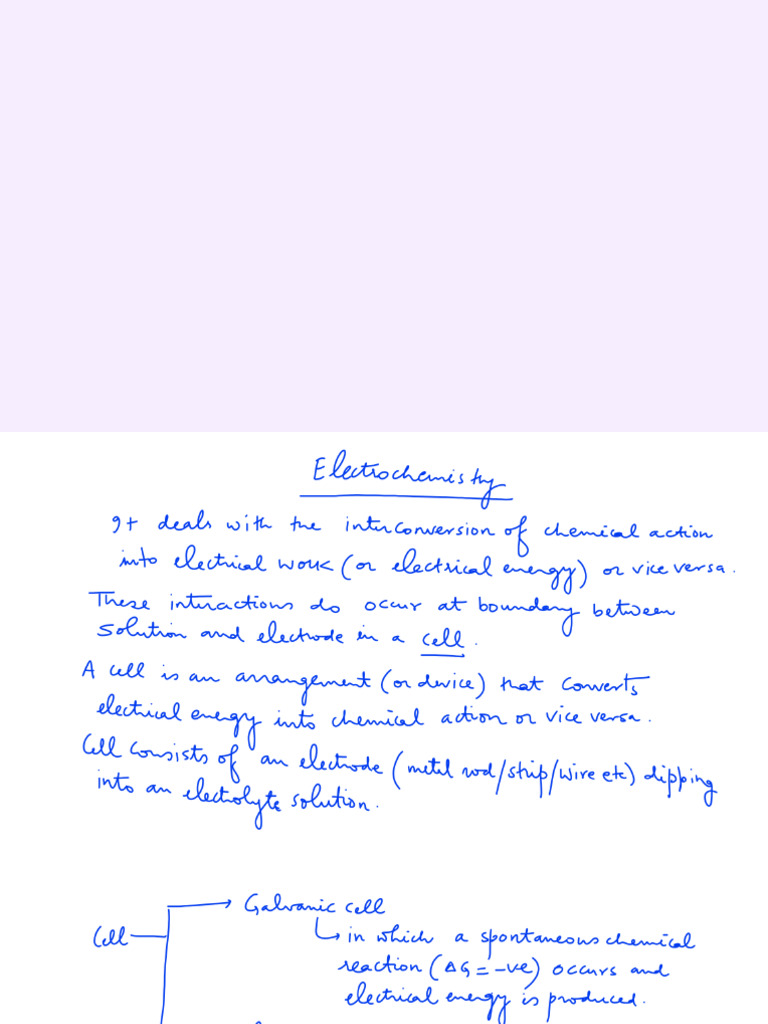 Electrochemistry
It deals with the interconversion of chemical action
into electrical work (or electrical energy) or vice versa.
These interactions do occur at boundary between
solution and electrode in a cell.
A cell is an arrangement (or device) that converts
electrical energy into chemical action or vice versa.
Cell consists of an electrode (metal rod/strip/wire etc) dipping
into an electrolyte solution.
Cell → Galvanic cell
↳ in which a spontaneous chemical
reaction (ΔG = -ve) occurs and
electrical energy is produced.